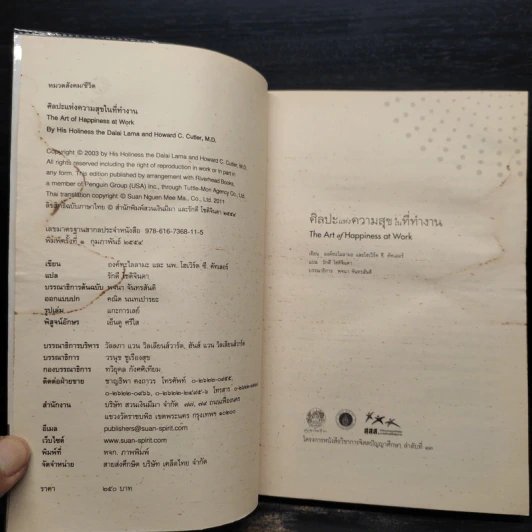 หมวดสังคม/ชีวิต
ศิลปะแห่งความสุขในที่ทำงาน
The Art of Happiness at Work
By His Holiness the Dalai Lama and Howard C. Cutler, M.D.
Copyright © 2003 by His Holiness the Dalai Lama and Howard C. Cutler, M.D.
All rights reserved including the right of reproduction in whole or in part in
any form. This edition published by arrangement with Riverhead Books,
a member of Penguin Group (USA) Inc., through Tuttle-Mori Agency Co., Ltd.
Thai translation copyright © Suan Nguen Mee Ma., Co., Ltd. 2011
ลิขสิทธิ์ฉบับภาษาไทย © สำนักพิมพ์สวนเงินมีมา และรักดี โชติจินดา ๒๕๕๔
เลขมาตรฐานสากลประจำหนังสือ 978-616-7368-11-5
พิมพ์ครั้งที่ ๑ กุมภาพันธ์ ๒๕๕๔
เขียน องค์ทะไลลามะ และ นพ. โฮเวิร์ด ซี. คัทเลอร์
แปล รักดี โชติจินดา
บรรณาธิการต้นฉบับ พจนา จันทรสันติ
ออกแบบปก คณิต นนทเปารยะ
รูปเล่ม แกะการะเลย์
พิสูจน์อักษร เย็นดู ศรีใส
บรรณาธิการบริหาร วัลลภา แวน วิลเลียนส์วาร์ด, ฮันส์ แวน วิลเลียนส์วาร์ด
บรรณาธิการ วรนุช ชูเรืองสุข
กองบรรณาธิการ ทวิยุคล กังศศิเทียม
ติดต่อฝ่ายขาย ชาญธิพา คงถาวร โทรศัพท์ ๐-๒๖๒๒-๐๙๕๕,
๐-๒๖๒๒-๐๙๖๖, ๐-๒๒๒๒-๒๔๙๕-๖ โทรสาร
สำนักงาน บริษัท สวนเงินมีมา จำกัด ๗๗, ๗๙ ถนนเฟื่องนคร
แขวงวัดราชบพิธ เขตพระนคร กรุงเทพฯ ๑๐๒๐๐
อีเมล publishers@suan-spirit.com
เว็บไซต์ www.suan-spirit.com
พิมพ์ที่ หจก. ภาพพิมพ์
จัดจำหน่าย สายส่งศึกษิต บริษัท เคล็ดไทย จำกัด
ราคา ๒๕๐ บาท
ศิลปะแห่งความสุขในที่ทำงาน
The Art of Happiness at Work
เขียน องค์ทะไลลามะ และโฮเวิร์ด ซี. คัทเลอร์
แปล รักดี โชติจินดา
บรรณาธิการ พจนา จันทรสันติ
สสส.
โครงการหนังสือวิชาการจิตตปัญญาศึกษา ลำดับที่ ๑๓